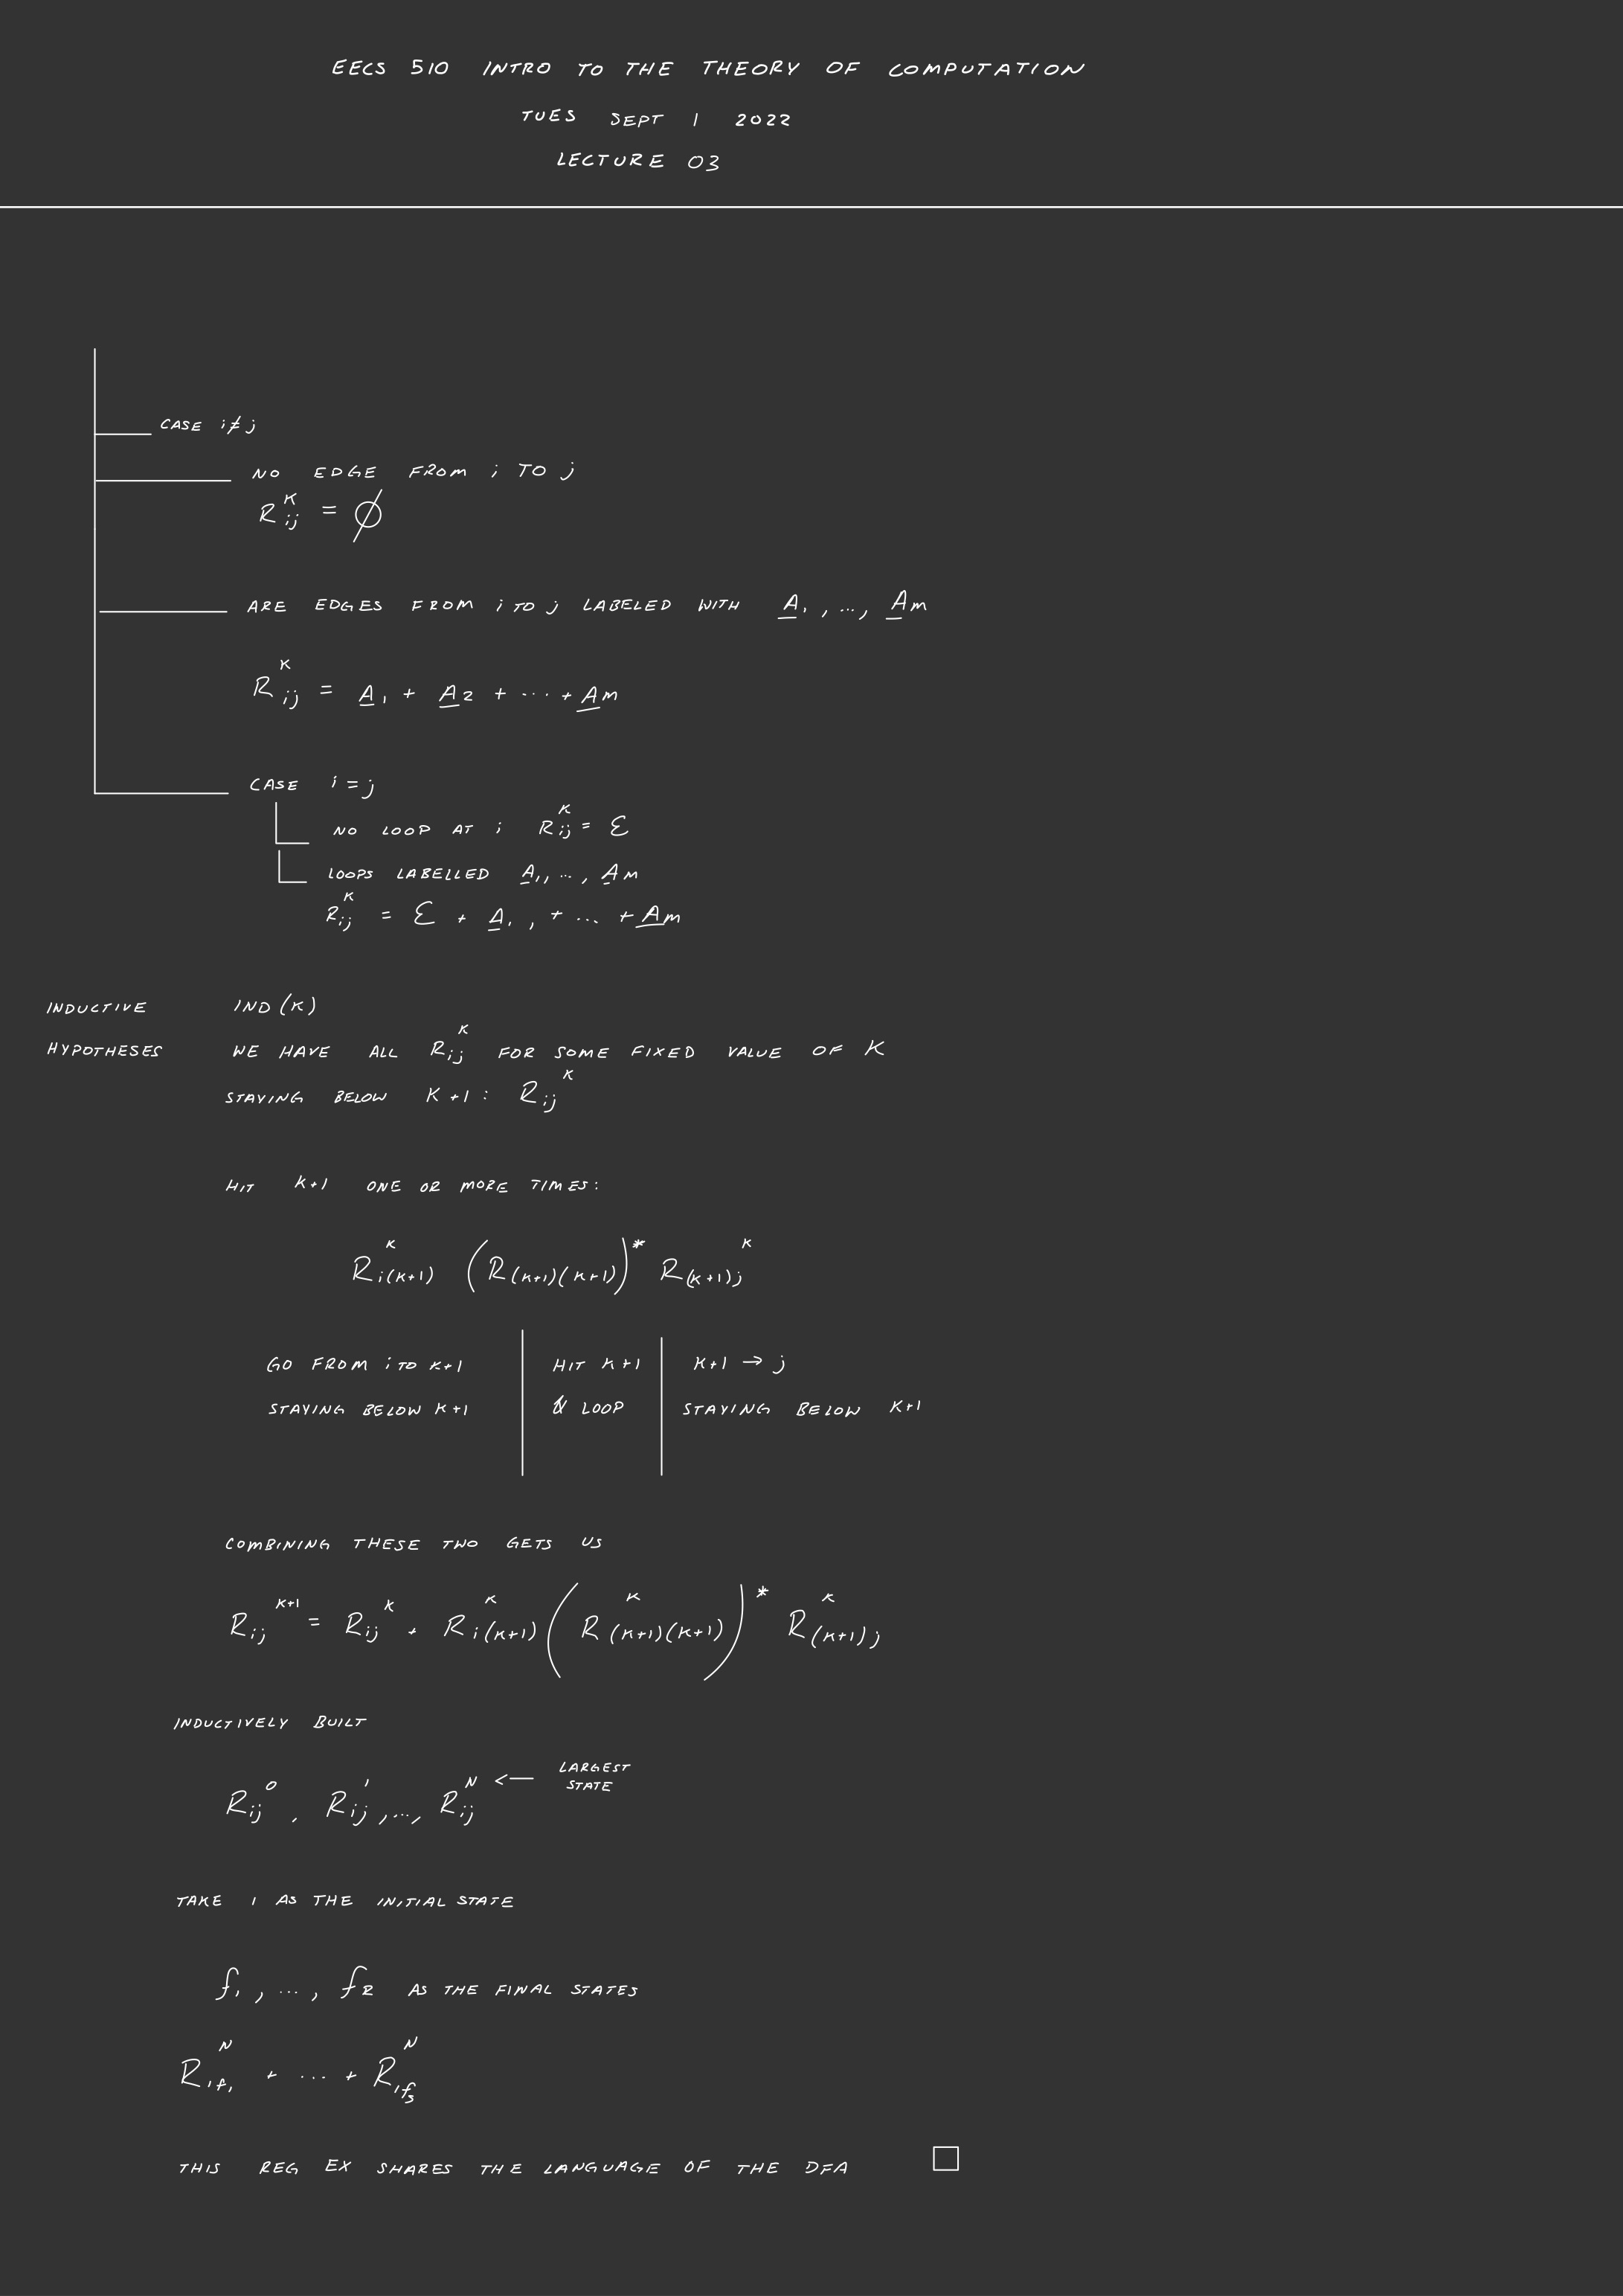 EECS 510 INTRO TO THE THEORY OF COMPUTATION
TUES SEPT 1 2022
LECTURE 03
CASE i ≠ j
NO EDGE FROM i TO j
R_{ij}^{K} = ∅
ARE EDGES FROM i TO j LABELED WITH A_1, ..., A_m
R_{ij}^{K} = A_1 + A_2 + ... + A_m
CASE i = j
NO LOOP AT i R_{ij}^{K} = ε
LOOPS LABELLED A_1, ..., A_m
R_{ij}^{K} = ε + A_1, + ... + A_m
INDUCTIVE IND(K)
HYPOTHESES WE HAVE ALL R_{ij}^{K} FOR SOME FIXED VALUE OF K
STAYING BELOW K+1: R_{ij}^{K}
HIT K+1 ONE OR MORE TIMES:
R_{i(K+1)}^{K} (R_{(K+1)(K+1)})^* R_{(K+1)j}^{K}
GO FROM i TO K+1 | HIT K+1 | K+1 → j
STAYING BELOW K+1 | & LOOP | STAYING BELOW K+1
COMBINING THESE TWO GETS US
R_{ij}^{K+1} = R_{ij}^{K} + R_{i(K+1)}^{K} (R_{(K+1)(K+1)}^{K})^* R_{(K+1)j}^{K}
INDUCTIVELY BUILT
R_{ij}^{0}, R_{ij}^{1}, ..., R_{ij}^{N} ← LARGEST STATE
TAKE 1 AS THE INITIAL STATE
f_1, ..., f_R AS THE FINAL STATES
R_{1f_1}^{N} + ... + R_{1f_S}^{N}
THIS REG EX SHARES THE LANGUAGE OF THE DFA □